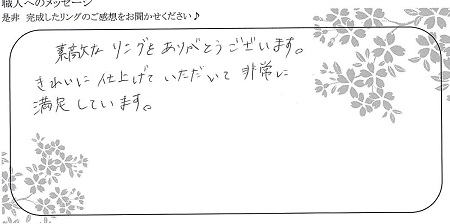 職人へのメッセージ
是非 完成したリングのご感想をお聞かせください♪
素敵な リングを ありがとうございます。
きれいに 仕上げて いただいて 非常に
満足しています。